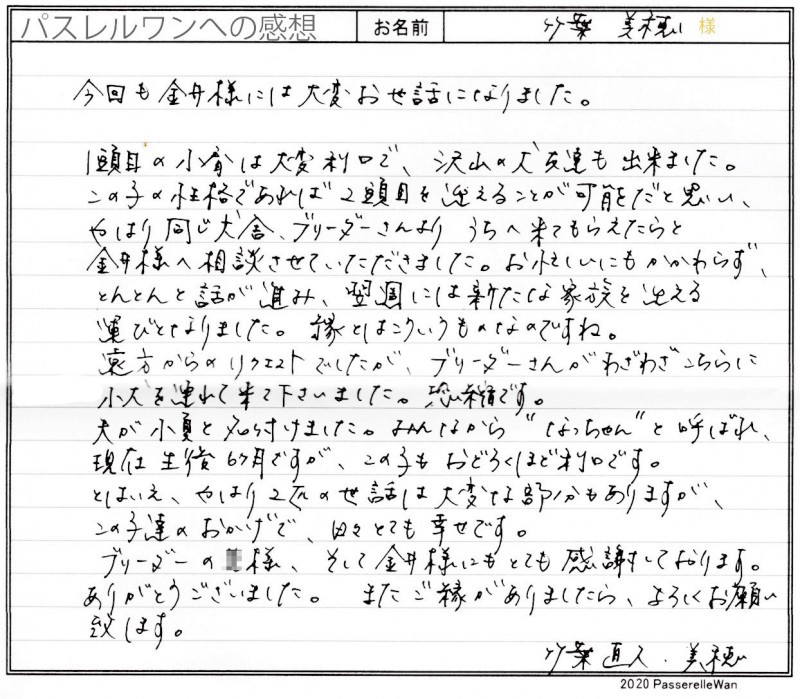 パスレルワンへの感想 お名前 竹葉 美穂 様
今回も金井様には大変お世話になりました。
1頭目の小宵は大変利口で、沢山の犬友達も出来ました。
この子の性格であれば2頭目を迎えることが可能だと思い、
やはり同じ犬舎、ブリーダーさんより うちへ来てもらえたらと
金井様へ相談させていただきました。お忙しいにもかかわらず、
とんとんと話が進み、翌週には新たな家族を迎える
運びとなりました。縁とはこういうものなのですね。
遠方からのリクエストでしたが、ブリーダーさんがわざわざこちらに
小犬を連れて来て下さいました。恐縮です。
夫が小夏と名付けました。みんなから"なっちゃん"と呼ばれ、
現在生後6ヶ月ですが、この子もおどろくほど利口です。
とはいえ、やはり2匹の世話は大変な部分もありますが、
この子達のおかげで、日々とても幸せです。
ブリーダーの 様、そして金井様にもとても感謝しております。
ありがとうございました。 またご縁がありましたら、よろしくお願い
致します。
竹葉 直人・美穂
2020 PasserelleWan